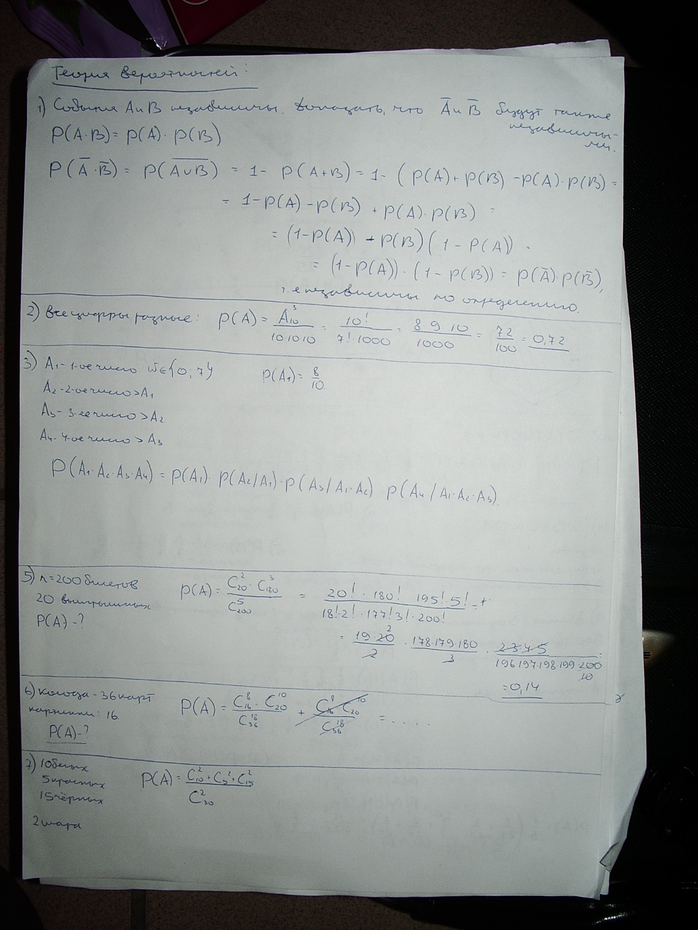 Теория вероятностей:
1) События A и B независимы. Доказать, что Ā и B̄ будут также
независимы-
ми.
P(A·B) = P(A)·P(B)
P(Ā·B̄) = P(A∪B)‾ = 1 - P(A+B) = 1 - (P(A)+P(B) - P(A)·P(B) =
= 1-P(A) - P(B) + P(A)·P(B) =
= (1-P(A)) - P(B)(1-P(A))
= (1-P(A))·(1-P(B)) = P(Ā)·P(B̄),
т.е независимы по определению.
2) все цифры разные: P(A) = A₁₀³ / 10·10·10 = 10! / 7!·1000 = 8·9·10 / 1000 = 72 / 100 = 0,72
3) A₁ - 1-ое число W∈{0;7} P(A₁) = 8/10
A₂ - 2-ое число > A₁
A₃ - 3-ее число > A₂
A₄ - 4-ое число > A₃
P(A₁·A₂·A₃·A₄) = P(A₁)·P(A₂/A₁)·P(A₃/A₁·A₂)·P(A₄/A₁·A₂·A₃)
5) n=200 билетов P(A) = C₂₀²·C₁₈₀³ / C₂₀₀⁵ = 20!·180!·195!·5! / 18!·2!·177!·3!·200! =
20 выигрышных
P(A)-?
= 19·20 / 2 · 178·179·180 / 3 · 2·3·4·5 / 196·197·198·199·200
= 0,14
6) колода - 36 карт P(A) = C₁₆⁸·C₂₀¹⁰ / C₃₆¹⁸ + C₁₆⁸·C₂₀¹⁰ / C₃₆¹⁸ = . . . .
картинки: 16
P(A)-?
7) 10 белых P(A) = C₁₀² + C₅² + C₁₅² / C₃₀²
5 красных
15 чёрных
2 шара